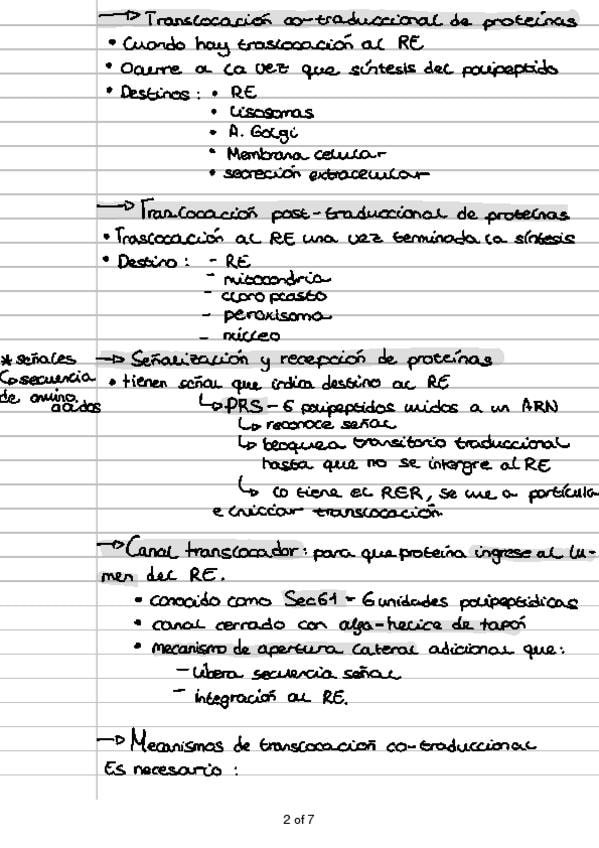 → Translocación co-traduccional de proteínas
• Cuando hay traslocación al RE
• Ocurre a la vez que síntesis del polipéptido
• Destinos: • RE
• Lisosomas
• A. Golgi
• Membrana celular
• secreción extracelular
→ Translocación post-traduccional de proteínas
• Traslocación al RE una vez terminada la síntesis
• Destino: - RE
- mitocondria
- cloroplasto
- peroxisoma
- núcleo
* señales
↳ secuencia
de amino
acidos
→ Señalización y recepción de proteínas
• tienen señal que indica destino al RE
↳ PRS - 6 polipeptidos unidos a un ARN
↳ reconoce señal
↳ bloquea transitorio traduccional
hasta que no se intergre al RE
↳ lo tiene el RER, se une a partícula
e iniciar translocación
→ Canal translocador: para que proteína ingrese al lu-
men del RE.
• conocido como Sec61 - 6 unidades polipeptídicas
• canal cerrado con alfa-hélice de tapón
• mecanismo de apertura lateral adicional que:
- libera secuencia señal
- integración al RE.
→ Mecanismos de translocación co-traduccional
Es necesario:
2 of 7